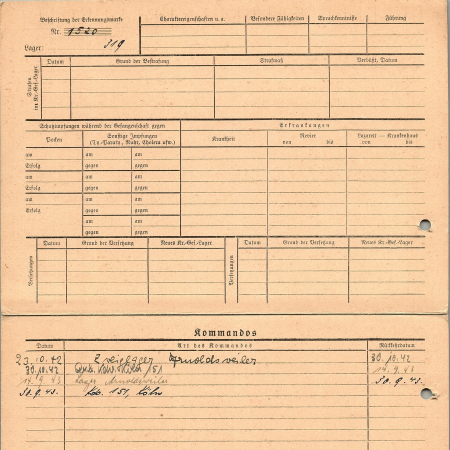 Beschriftung der Erkennungsmarke
Charaktereigenschaften u. a.
Besondere Fähigkeiten
Sprachkenntnisse
Führung
Nr. 1520
Lager: 319
Strafen im Kr.-Gef.-Lager
Datum
Grund der Bestrafung
Strafmaß
Verbüßt, Datum
Schutzimpfungen während der Gefangenschaft gegen
Erkrankungen
Pocken
Sonstige Impfungen
(Ty.-Paraty., Ruhr, Cholera usw.)
Krankheit
Revier
von bis
Lazarett — Krankenhaus
von bis
am am am
Erfolg gegen gegen
am am am
Erfolg gegen gegen
am am am
Erfolg gegen gegen
am am
gegen gegen
am am
gegen gegen
Versetzungen
Datum
Grund der Versetzung
Neues Kr.-Gef.-Lager
Versetzungen
Datum
Grund der Versetzung
Neues Kr.-Gef.-Lager
Kommandos
Datum
Art des Kommandos
Rückkehrdatum
10.42 Zweiglager Arnoldsweiler 30.10.42
30.10.42 151 14.9.43
14.9.43 Lager Arnoldsweiler 30.9.43.
30.9.43. Kdo. 151, Köln